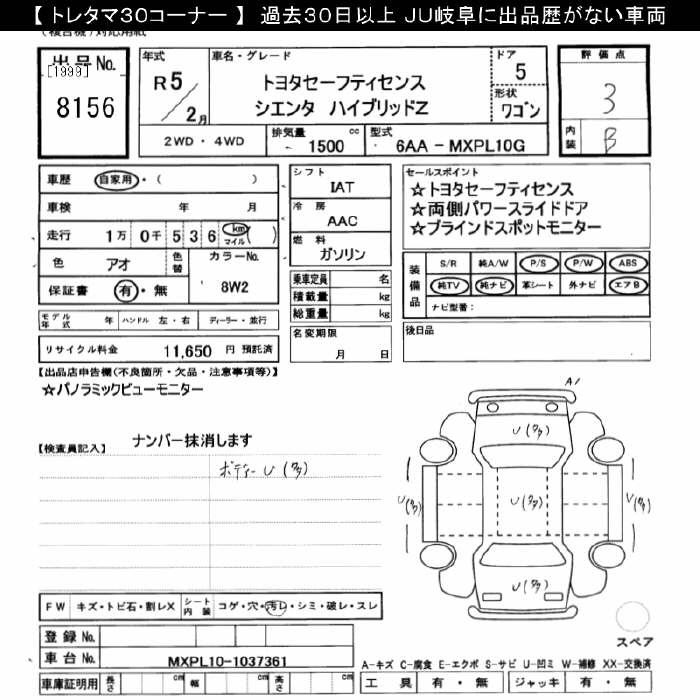 【 トレタマ30コーナー 】 過去30日以上 JU岐阜に出品歴がない車両
出品No.
[1999]
8156
年式
R 5
2 月
車名・グレード
トヨタセーフティセンス
シエンタ ハイブリッドZ
ドア
5
形状
ワゴン
評価点
3
内装
B
2WD ・ 4WD
排気量
1500 cc
型式
6AA - MXPL10G
車歴 自家用 ・ ( )
車検 年 月
走行 1万 0千 5 3 6 km マイル ( )
色 アオ
色替
カラーNo.
8W2
保証書 有 ・ 無
シフト
IAT
冷房
AAC
燃料
ガソリン
乗車定員 名
積載量 kg
総重量 kg
セールスポイント
☆トヨタセーフティセンス
☆両側パワースライドドア
☆ブラインドスポットモニター
装備品
S/R 純A/W P/S P/W ABS
純TV 純ナビ 革シート 外ナビ エアB
ナビ型番:
モデル年式 年 ハンドル 左・右 ディーラー・並行
リサイクル料金 11,650 円 預託済
名変期限
月 日
後日品
【出品店申告欄(不良箇所・欠品・注意事項等)】
☆パノラミックビューモニター
【検査員記入】 ナンバー抹消します
ボディー U (タタ)
A1
U (タタ)
U (タタ)
U (タタ)
U (タタ)
U (タタ)
FW キズ・トビ石・割レX
シート内装
コゲ・穴・汚レ・シミ・破レ・スレ
登録 No.
車台 No. MXPL10-1037361
車庫証明用 長さ cm 幅 cm 高さ cm
スペア
A-キズ C-腐食 E-エクボ S-サビ U-凹ミ W-補修 XX-交換済
工具 有 ・ 無 ジャッキ 有 ・ 無